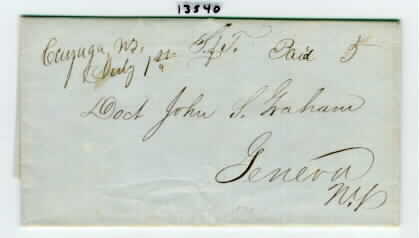 13540
Cayuga, NY.
July 1st Paid 5
Doct John S. Graham
Geneva
NY